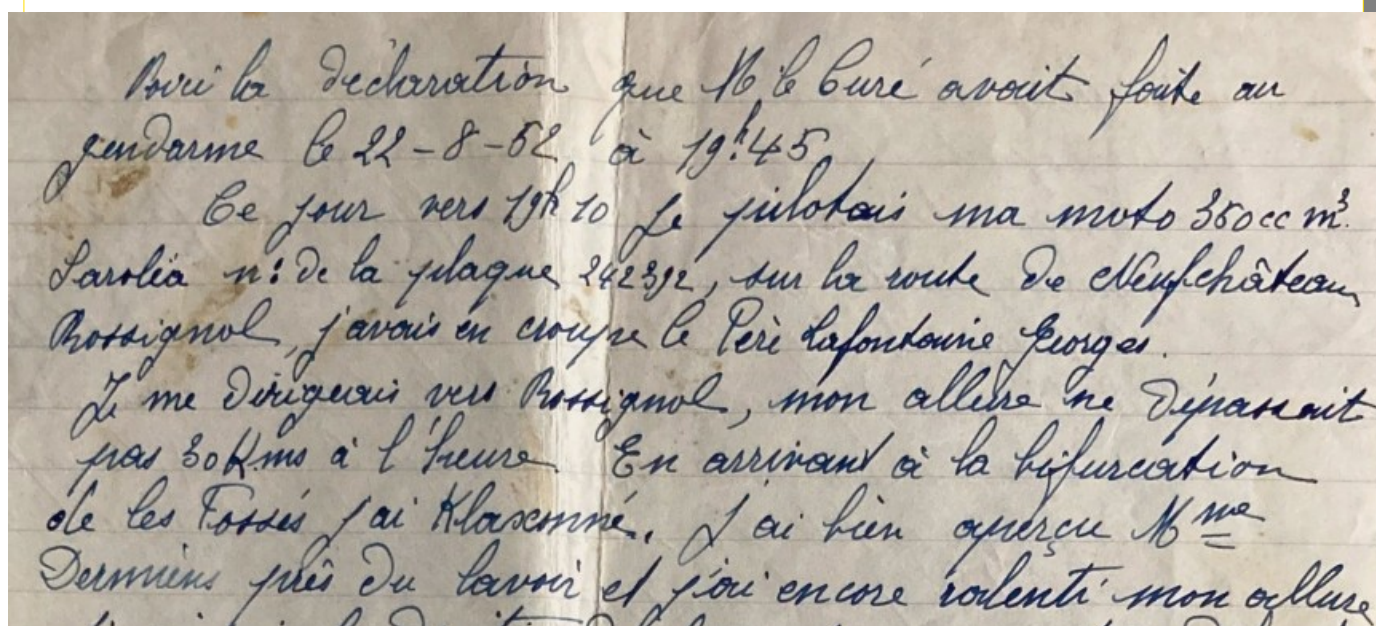 Voici la déclaration que M le Curé avait faite au
gendarme le 22-8-52 à 19h45
Ce jour vers 19h10 je pilotais ma moto 350cc m3.
Saroléa n: de la plaque 242392, sur la route de Neufchâteau
Rossignol, j'avais en croupe le Père Lafontaine Georges.
Je me dirigeais vers Rossignol, mon allure ne dépassait
pas 30Kms à l'heure En arrivant à la bifurcation
de les Fossés j'ai Klaxonné. J'ai bien aperçu Mme
près du lavoir et j'ai encore ralenti mon allure